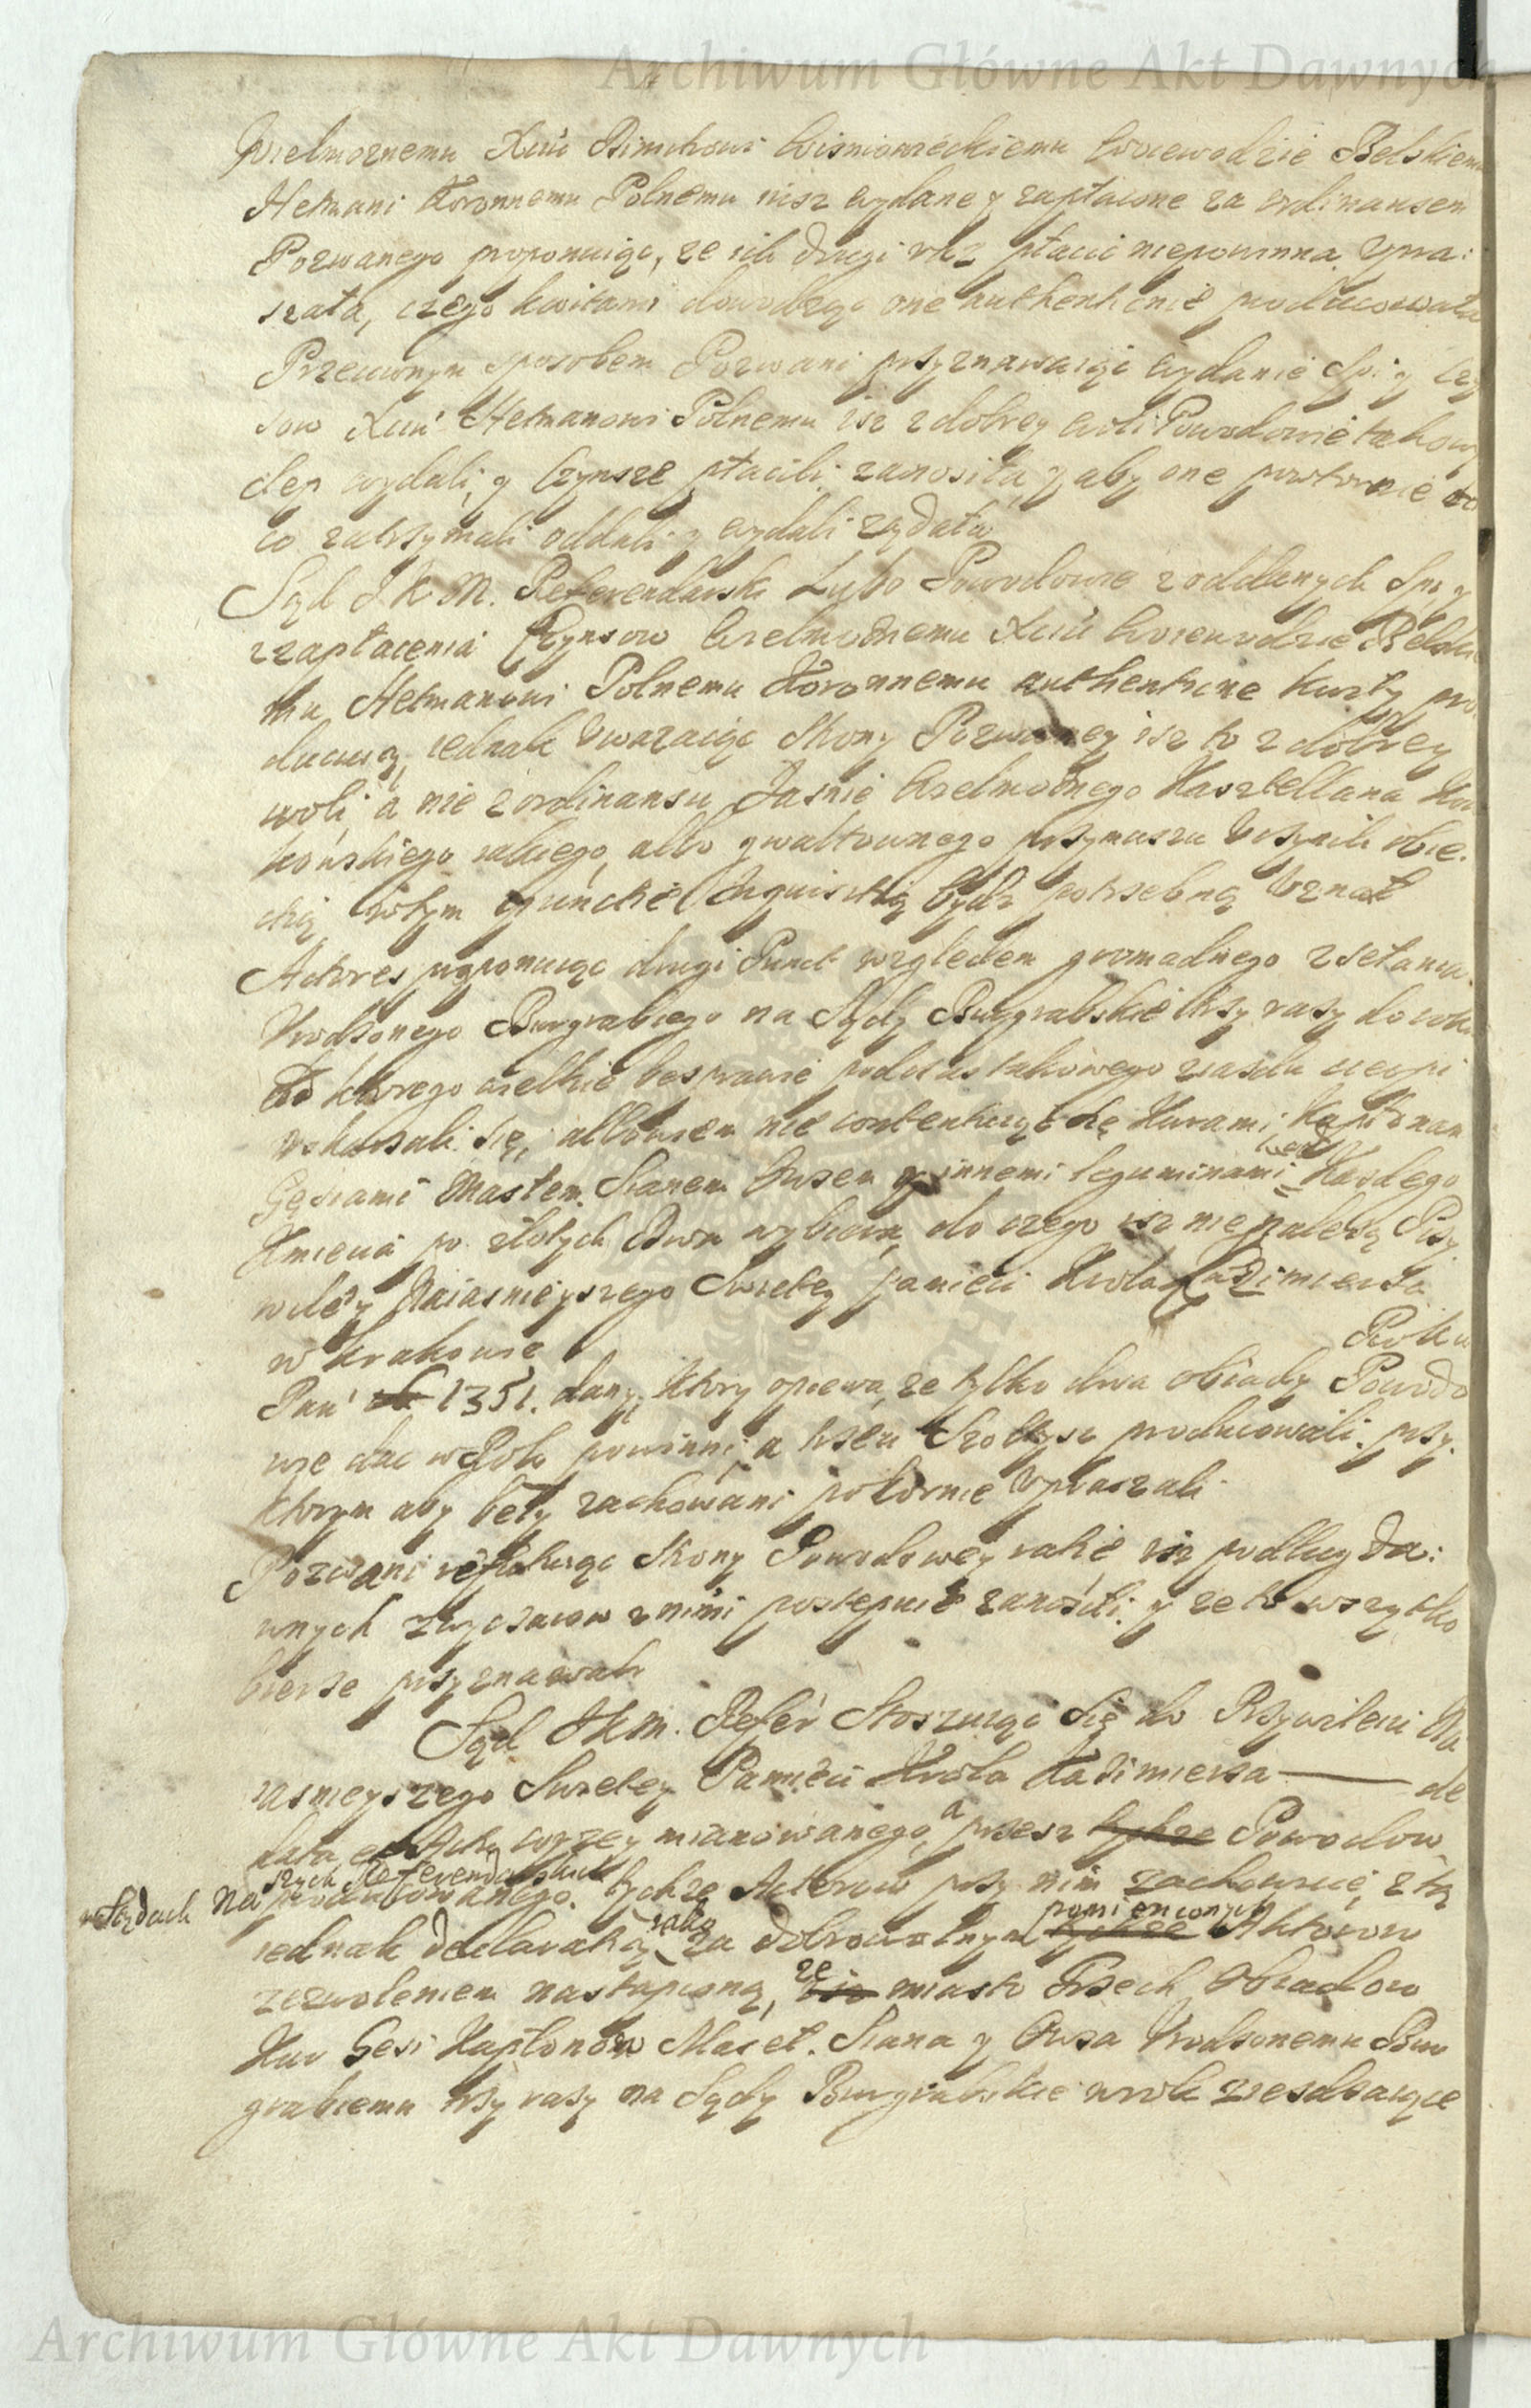 Archiwum Główne Akt Dawnych
Wielmoznemu Xciu Wisniowieckiemu Woiewodzie Belskiemu
Hetmani Koronnemu Polnemu iusz wydane y zapłacone za ordinansem
Pozwanego proponuiąc, ze ich drugi raz płacic niepowinna upra:
szała, czego kwitami dowodząc one authenticnie producowała
Przeciwnym sposobem Pozwani przyznawaiąc wydanie Spi: y Czy
sow Xciu Hetmanowi Polnemu isz z dobrey woli Powodowie takowy
dep wydali, y Czynsze płacili zanosiła, y aby one powtornie
co zatrzymali oddali y wydali ządała
Sąd J K M. Referendarski Lubo Powodowie z oddanych Spi: y
z zapłacenia Czynsow Wielmoznemu Xciu Woiewodzie Belskie
mu Hetmanowi Polnemu Koronnemu authenticne kwity pro
ducuią, iednak uwazaiąc Strony Pozwaney isz to z dobrey
woli a nie z ordinansu Jasnie Wielmoznego Kasztellana Kra
kowskiego iakiego, albo gwałtownego przymuszu uczynili obie
cktią wtym punckcie Inquisitią bydz potrzebną uznał
Actores proponuiąc drugi Punct względem gromadnego zsełania
Urodzonego Burgrabiego na Sądy Burgrabskie trzy razy do roku
od ktorego wielkie bezprawie podczas takowego ziazdu cierpi
uskarzali się, albowiem nie contentuiąc się Kurami, Kapłonam
Gęsiami Masłem, Sianem Owsem y innemi leguminami Kazdego
Kmiecia po złotych Dwa wybiera, do czego isz nienalezą Przy
wiley Naiasnieyszego Swietey pamieci Krola Kazimierza
w Krakowie Roku
Pan' 1351. dany, ktory opiewa, ze tylko dwa obiady Powodo
wie dac w Rok powinni, a trzeci Szołtysz producowali, przy
ktorym aby beły zachowani pokornie upraszali
Pozwani Strony Powodowey iakie isz podług da:
wnych zwyczaiow z nimi postępuie zanosili, y ze to wszytko
bierze przyznawali
Sąd JKM. Refer' Stosuiąc się do Przywileiu Na
iasnieyszego Swietey Pamieci Krola Kazimierza de
data et Actu wyzey mianowanego, a przesz tychze Powodow
w Sądach Naszych Referendarskich producowanego. tychze Actorow przy nim zachowuie, z tą
iednak declaratią iako za dobrowolnym tychze pomienionych Aktorow
zezwoleniem nastąpioną, ze isz miasto Trzech Obiadow
Kur Gesi Kapłonow Maseł. Siana y Owsa Urodzonemu Bur
grabiemu trzy razy na Sądy Burgrabskie wrok ziezdzaiące
Archiwum Główne Akt Dawnych